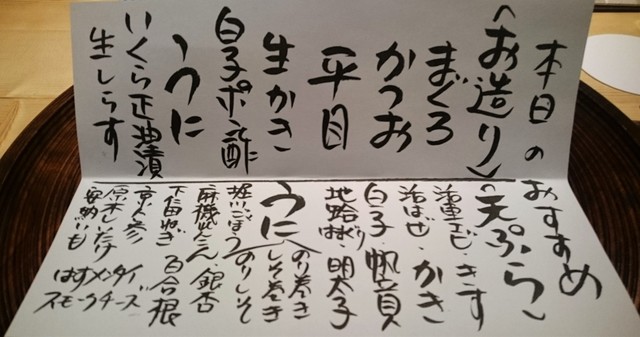 本日のおすすめ
〈お造り〉
まぐろ
かつお
平目
生かき
白子ポン酢
うに
いくら正油漬
生しらす
〈天ぷら〉
活車エビ・きす
活はぜ・かき
白子・帆立貝
明太子
うに
のり巻き
しそ巻き
堀川ごぼう のりしそ
麻機れんこん 銀杏
下仁田ねぎ 百合根
京人参
原木しいたけ
安納いも
はすメンタイ
スモークチーズ